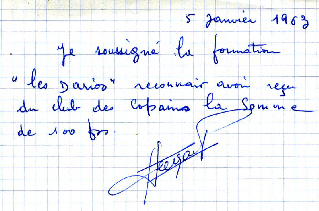 5 Janvier 1963
Je soussigné la formation
"les Darios" reconnait avoir reçu
du club des copains la somme
de 100 frs.